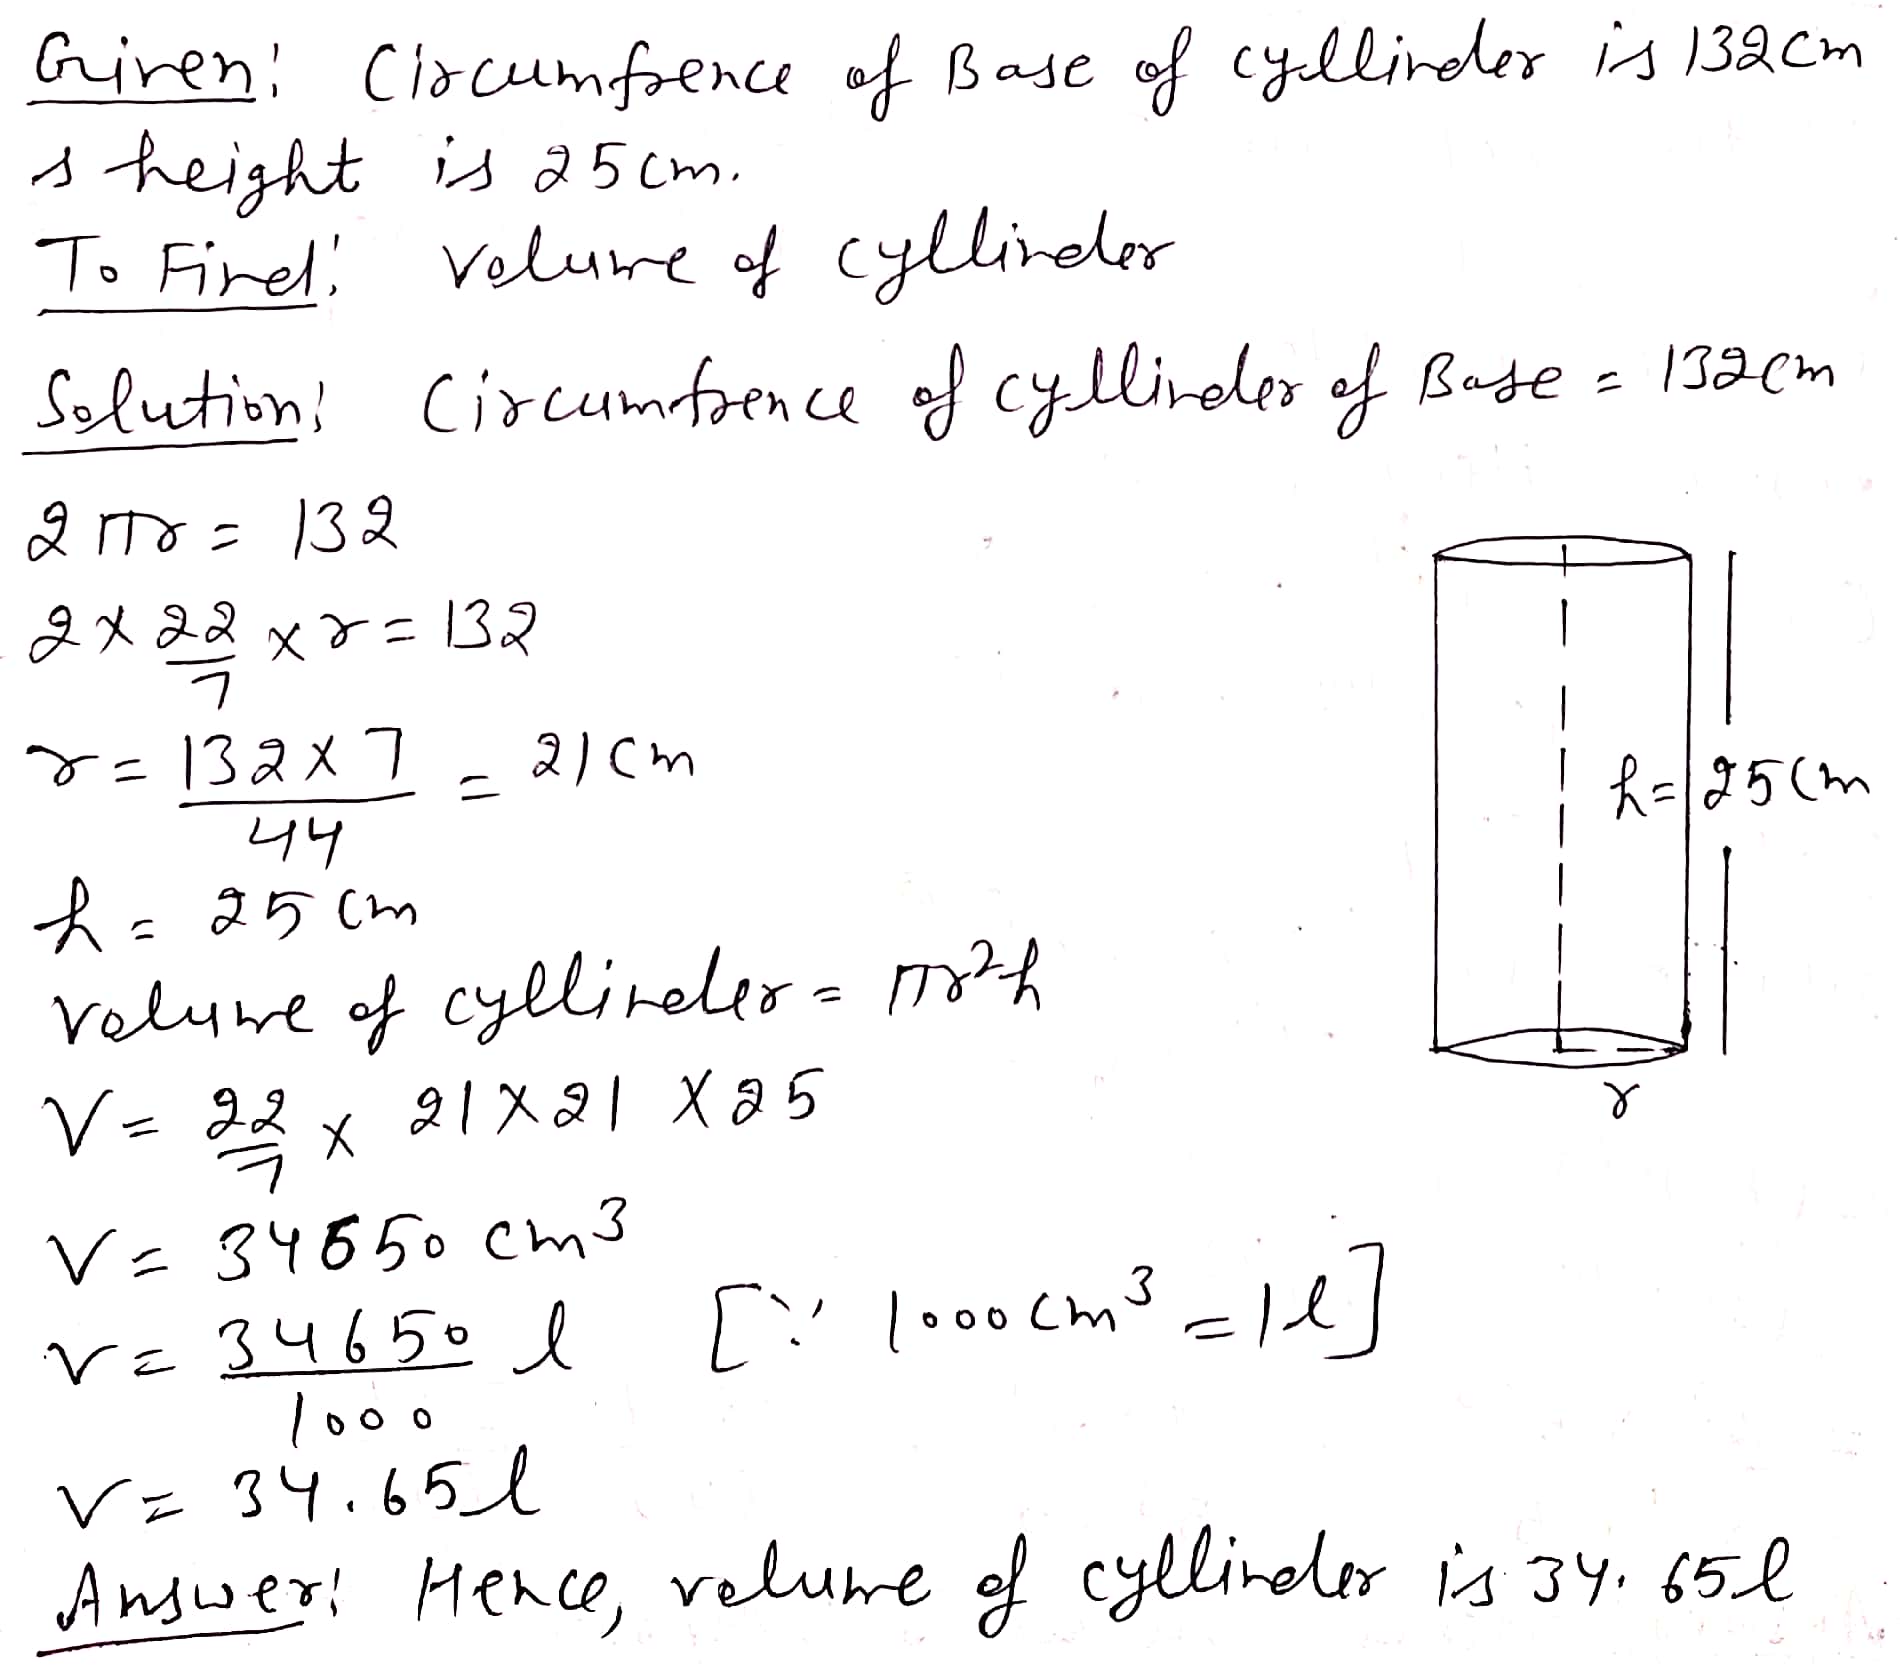 Given: Circumfrence of Base of cyllinder is 132cm
& height is 25cm.
To Find: Volume of cyllinder
Solution: Circumfrence of cyllinder of Base = 132cm
2πr = 132
2 x 22/7 x r = 132
r = 132x7/44 = 21cm
h = 25cm
h = 25cm
Volume of cyllinder = πr²h
r
V = 22/7 x 21x21 x25
V = 34650 cm³
V = 34650/1000 l [∵ 1000cm³ = 1l]
V = 34.65l
Answer: Hence, volume of cyllinder is 34.65l